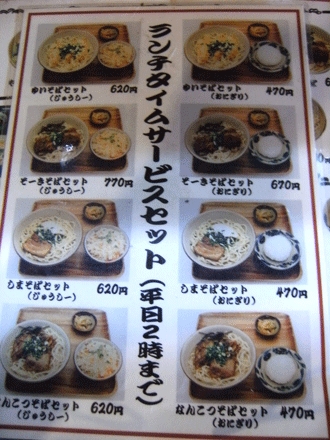 ランチタイムサービスセット(平日2時まで)
ゆいそばセット 620円
(じゅうしー)
ゆいそばセット 470円
(おにぎり)
そーきそばセット 770円
(じゅうしー)
そーきそばセット 670円
(おにぎり)
しまそばセット 620円
(じゅうしー)
しまそばセット 470円
(おにぎり)
なんこつそばセット 620円
(じゅうしー)
なんこつそばセット 470円
(おにぎり)